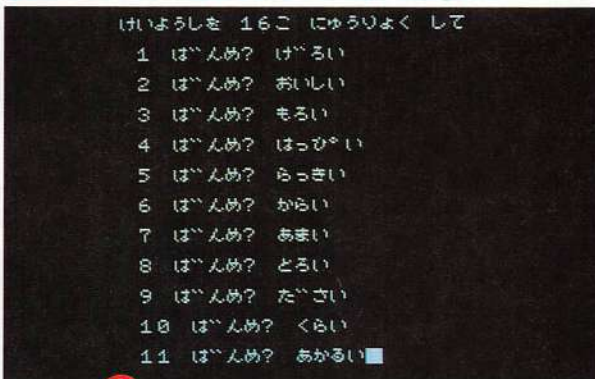 けいようしを 16こ にゅうりょく して
1 ば゛んめ? け゛ろい
2 は゛んめ? おいしい
3 は゛んめ? もろい
4 は゛んめ? はっひ゜い
5 は゛んめ? らっきい
6 は゛んめ? からい
7 は゛んめ? あまい
8 は゛んめ? とろい
9 は゛んめ? た゛さい
10 は゛んめ? くらい
11 は゛んめ? あかるい